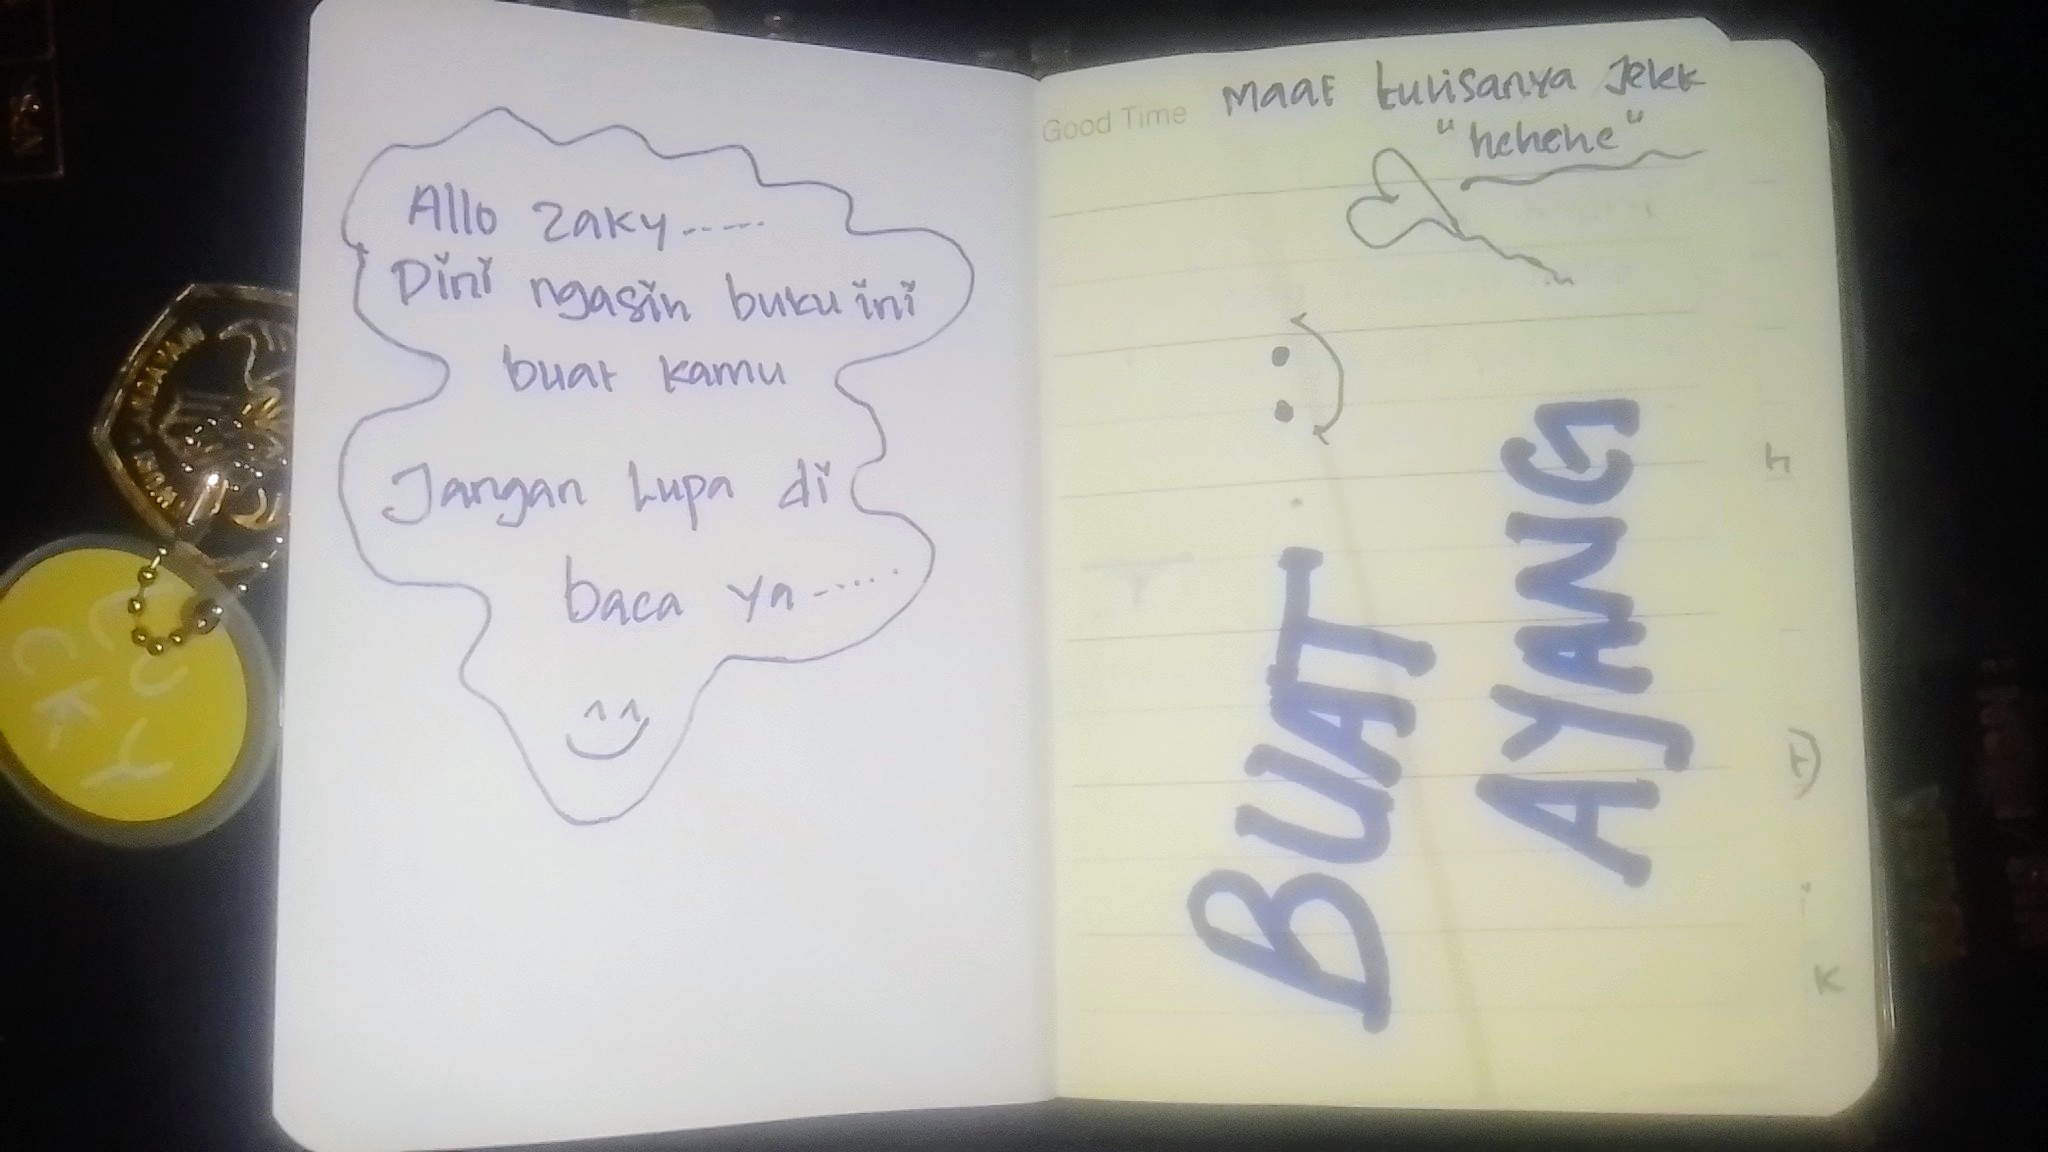 Allo Zaky......
Dini ngasih buku ini
buat kamu
Jangan Lupa di
baca ya......
Good Time
MAAF tulisanya Jelek
"hehehe"
BUAT
AYANG
LUCKY